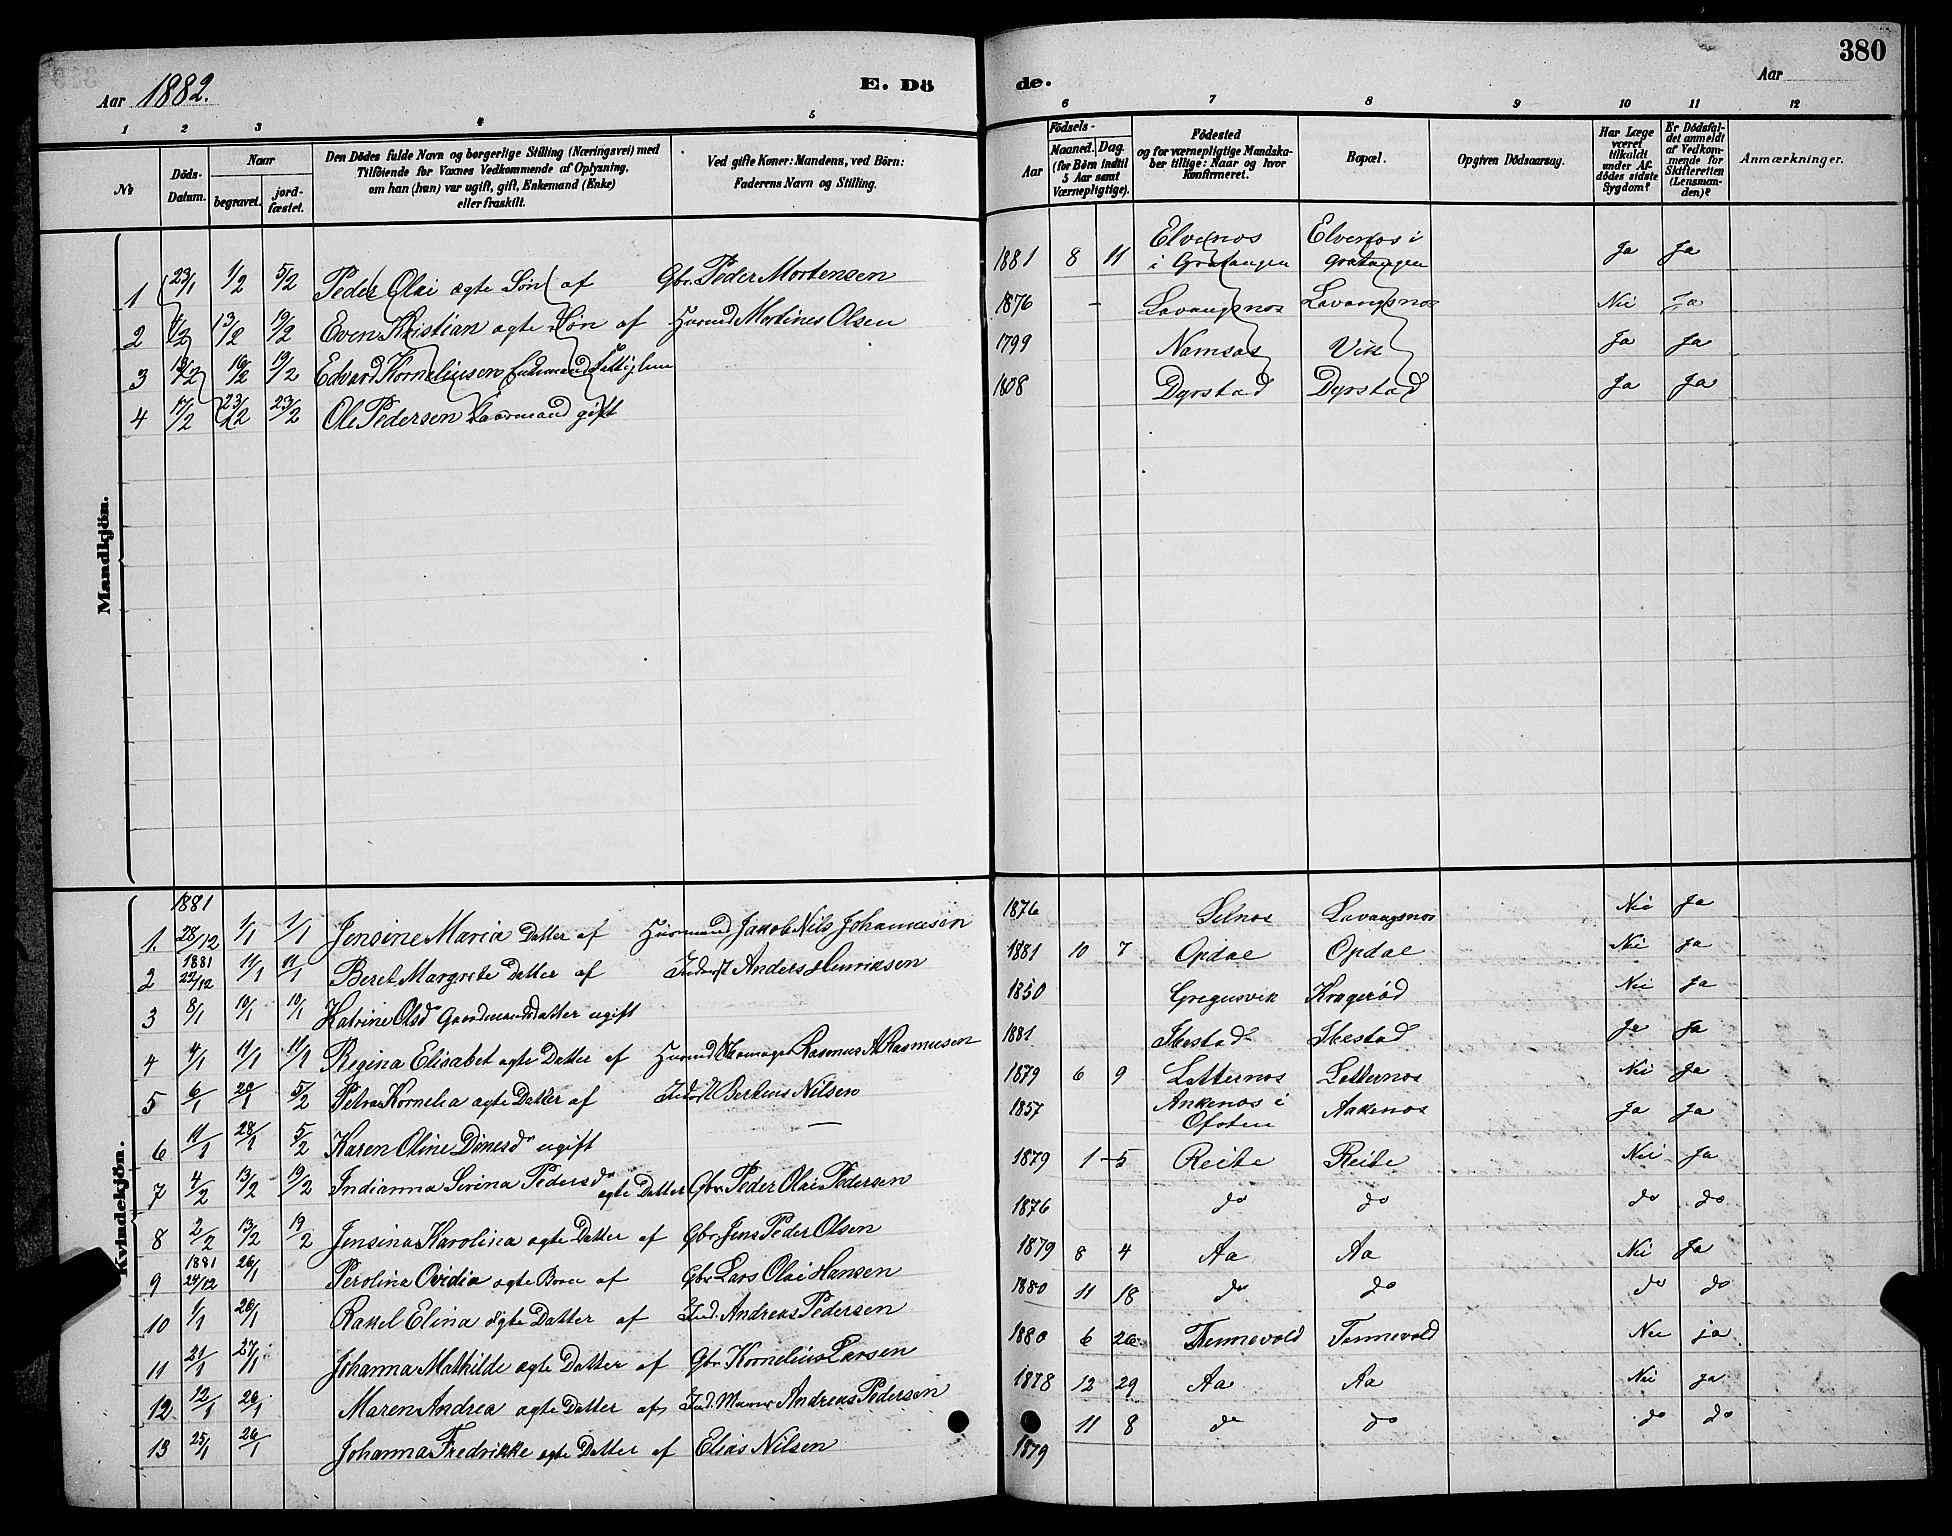 380
Aar 1882.
E. Dö
de.
Aar
1 2 3 4 5 6 7 8 9 10 11 12
No
Döds-Datum.
Naar
begravet.
jord-fæstet.
Den Dödes fulde Navn og borgerlige Stilling (Næringsvei) med
Tilföiende for Voxnes Vedkommende af Oplysning,
om han (hun) var ugift, gift, Enkemand (Enke)
eller fraskilt.
Ved gifte Koner: Mandens, ved Börn:
Faderens Navn og Stilling.
Födsels-
Aar
Maaned. Dag.
(for Börn indtil
5 Aar samt
Værnepligtige).
Födested
og for værnepligtige Mandska-
ber tillige: Naar og hvor
konfirmeret.
Bopæl.
Opgiven Dödsaarsag.
Har Læge
været
tilkaldt
under Af-
dödes sidste
Sygdom?
Er Dödsfal-
det anmeldt
af Vedkom-
mende for
Skifteretten
(Lensman-
den)?
Anmærkninger.
Mandkjön.
1 23/1 1/2 5/2 Peder Olai ægte Søn af Gbr. Peder Mortensen 1881 8 11 Elvenes i Gratangen Elvenes i Gratangen Ja Ja
2 13/2 19/2 Even Kristian ægte Søn af Husmd Mortines Olsen 1876 – Lavangsnes Lavangsnes Nei Ja
3 19/2 19/2 Edvard Korneliusen Enkemand 1799 Namsos Vik Ja Ja
4 17/2 23/2 23/2 Ole Pedersen Kaarmand gift 1808 Dyrstad Dyrstad Ja Ja
Kvindekjön.
1. 1881 28/12 1/1 1/1 Jensine Maria Datter af Husmand Jakob Nils Johannesen 1876 Selnes Lavangsnes Nei Ja
2 1881 22/12 11/1 11/1 Beret Margrete Datter af Inderst Anders Henriksen 1881 10 7 Opdal Opdal Nei Ja
3 8/1 19/1 19/1 Katrine Olsd Gaardmandsdatter ugift 1850 Gregusvik Kragerød Nei Ja
4 4/1 11/1 11/1 Regina Elisabet ægte Datter af Husmd Skomager Rasmus A Rasmusen 1881 Ibestad Ibestad Ja Ja
5 6/1 28/1 5/2 Petra Kornelia ægte Datter af Inderst Berteus Nilsen 1879 6 9 Latternes Latternes Nei Ja
6 11/1 28/1 5/2 Karen Oline Dinesdr ugift — 1857 Ankenes i Ofoten Aakenes Ja Ja
7 4/2 13/2 19/2 Indianna Sirina Pedersdr ægte Datter Gbr. Peder Olai Pedersen 1879 1 – 5 Reite Reite Nei Ja
8 2/2 13/2 19/2 Jensina Karolina ægte Datter af Gbr Jens Peder Olsen 1876 do do do do
9 1881 29/12 26/1 Perolina Ovidia ægte Barn af Gbr Lars Olai Hansen 1879 8 4 Aa Aa Nei Ja
10 1/1 26/1 Rakel Elina ægte Datter af Ind. Andreas Pedersen 1880 11 18 do do do do
11 21/1 27/1 Johanna Mathilde ægte Datter af Gbr Kornelius Larsen 1880 6 26 Tennevold Tennevold Nei ja
12 12/1 26/1 Maren Andrea ægte Datter af Ind. Murer Andreas Pedersen 1878 12 29 Aa Aa Nei ja
13 25/1 26/1 Johanna Fredrikke ægte Datter af Elias Nilsen 1879 11 8 do do do do